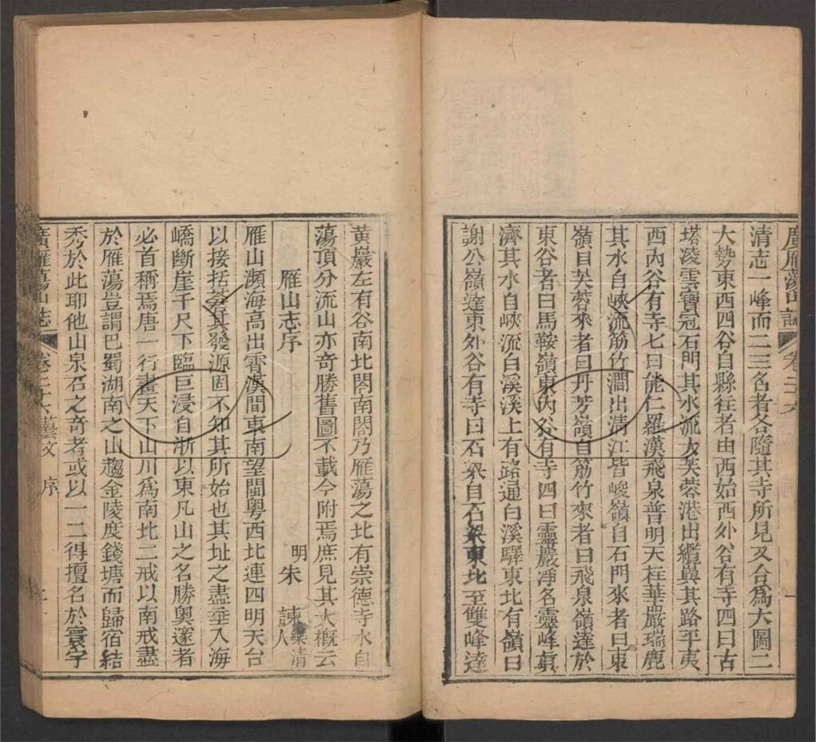 廣雁蕩山誌 卷二十六
清志一峰而二三名者各隨其寺所見又合爲大圖二
大勢東西四谷自縣往者由西始西外谷有寺四曰古
塔淩雲寶冠石門其水流大芙蓉港出繒巽其路平夷
西內谷有寺七曰能仁羅漢飛泉普明天柱華嚴瑞鹿
其水自峽流筋竹澗出清江皆峻嶺自石門來者曰東
嶺自芙蓉來者曰丹芳嶺自筋竹來者曰飛泉嶺達於
東谷者曰馬鞍嶺東內谷有寺四曰靈巖淨名靈峰眞
濟其水自峽流白溪溪上有路通白溪驛東北有嶺曰
謝公嶺達東外谷有寺曰石梁自石梁東北至雙峰達
黃巖左有谷南北閤南閤乃雁蕩之北有崇德寺水自
蕩頂分流山亦奇勝舊圖不載今附焉庶見其大槪云
雁山志序
明朱 諫樂清人
雁山瀕海高出霄漢間東南望閩粤西北連四明天台
以接括蒼其發源固不知其所始也其址之盡垂入海
嶠斷崖千尺下臨巨浸自浙以東凡山之名勝奧邃者
必首稱焉唐一行畫天下山川爲南北二戒以南戒盡
於雁蕩豈謂巴蜀湖南之山趨金陵度錢塘而歸宿結
秀於此耶他山泉石之奇者或以一二得擅名於寰宇
廣雁蕩山誌 卷二十六 藝文 序